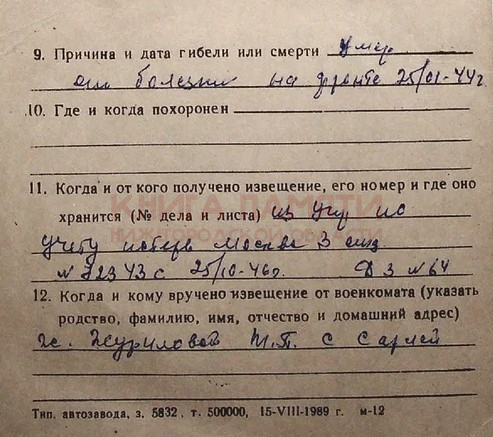 9. Причина и дата гибели или смерти умер
от болезни на фронте 25/01-44г
10. Где и когда похоронен
11. Когда и от кого получено извещение, его номер и где оно
хранится (№ дела и листа) из Упр по
КНИГА ПАМЯТИ
НИЖЕГОРОДСКОЙ ОБЛАСТИ
учету потерь Москва 3
с 25/10-46г. Д 3 № 64
12. Когда и кому вручено извещение от военкомата (указать
родство, фамилию, имя, отчество и домашний адрес)
ж. Журиловой с Сарлей
Тип. автозавода, з. 5832, т. 500000, 15-VIII-1989 г. м-12